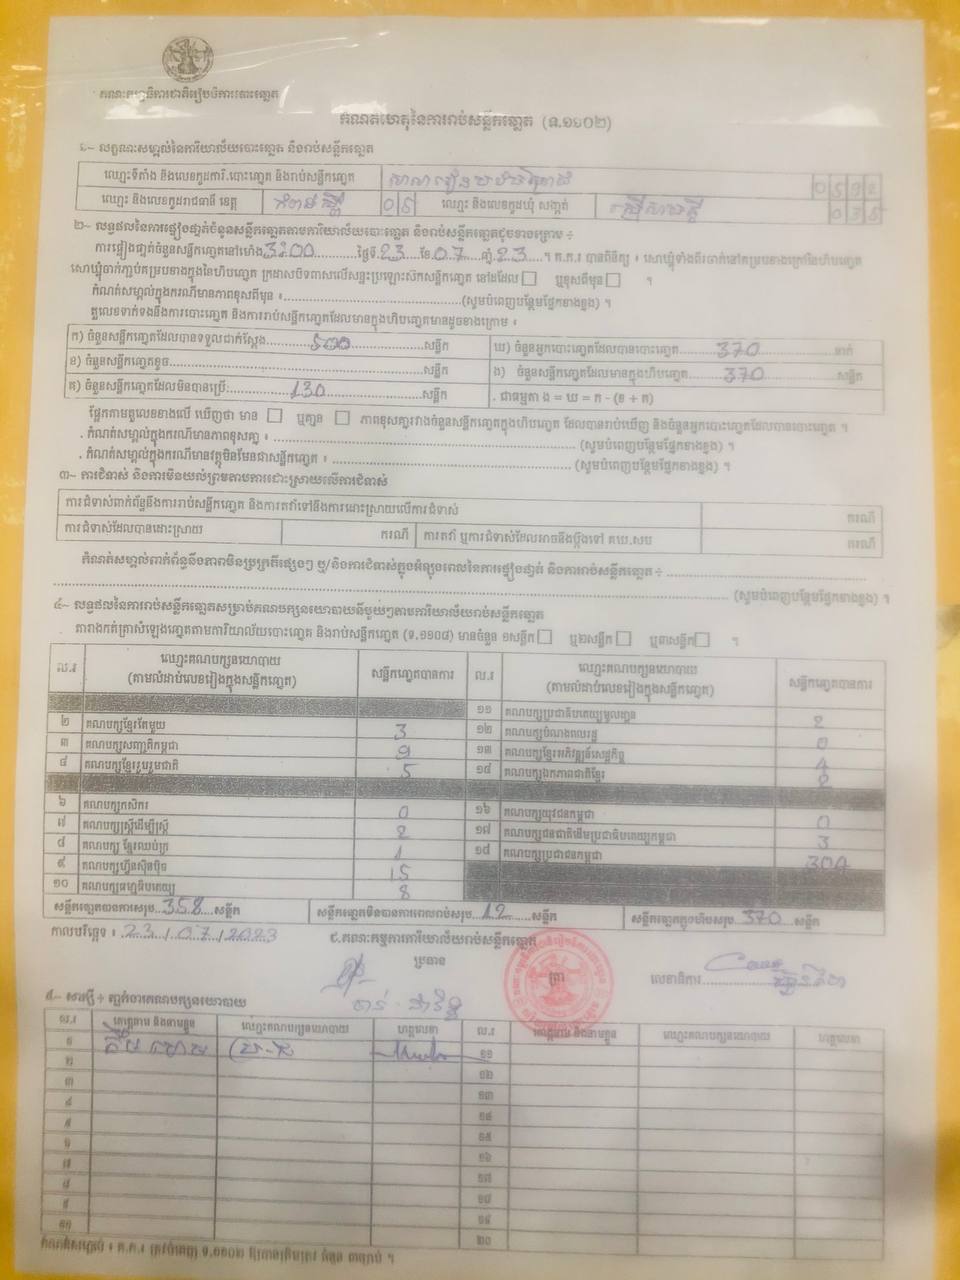 គណៈកម្មាធិការជាតិរៀបចំការបោះឆ្នោត
កំណត់ហេតុនៃការរាប់សន្លឹកឆ្នោត (ទ.១១០២)
១~ លក្ខណៈសម្គាល់នៃការិយាល័យបោះឆ្នោត និងរាប់សន្លឹកឆ្នោត
ឈ្មោះទីតាំង និងលេខកូដការិ.បោះឆ្នោត និងរាប់សន្លឹកឆ្នោត
ឈ្មោះ និងលេខកូដរាជធានី ខេត្ត កំពង់ស្ពឺ 05 ឈ្មោះ និងលេខកូដឃុំ សង្កាត់
២~ លទ្ធផលនៃការផ្ទៀងផ្ទាត់ចំនួនសន្លឹកឆ្នោតតាមការិយាល័យបោះឆ្នោត និងរាប់សន្លឹកឆ្នោតដូចខាងក្រោម ÷
ការផ្ទៀងផ្ទាត់ចំនួនសន្លឹកឆ្នោតនៅម៉ោង 3:00 ថ្ងៃទី 23 ខែ 07 ឆ្នាំ 23 ។ គ.ក.រ បានពិនិត្យ ៖ សោឃ្មុំទាំងពីរចាក់នៅគម្របខាងក្រៅនៃហិបឆ្នោត
សោឃ្មុំចាក់ភ្ជាប់គម្របខាងក្នុងនៃហិបឆ្នោត ក្រដាសបិទពាសលើសន្ទះប្រឡោះស៊កសន្លឹកឆ្នោត នៅដដែល ឬខុសពីមុន ។
កំណត់សម្គាល់ក្នុងករណីមានភាពខុសពីមុន ៖ (សូមបំពេញបន្ថែមផ្នែកខាងខ្នង) ។
តួលេខទាក់ទងនឹងការបោះឆ្នោត និងការរាប់សន្លឹកឆ្នោតដែលមានក្នុងហិបឆ្នោតមានដូចខាងក្រោម ៖
ក) ចំនួនសន្លឹកឆ្នោតដែលបានទទួលជាក់ស្តែង 500 សន្លឹក ឃ) ចំនួនអ្នកបោះឆ្នោតដែលបានបោះឆ្នោត 370 នាក់
ខ) ចំនួនសន្លឹកឆ្នោតខូច សន្លឹក ង) ចំនួនសន្លឹកឆ្នោតដែលមានក្នុងហិបឆ្នោត 370 សន្លឹក
គ) ចំនួនសន្លឹកឆ្នោតដែលមិនបានប្រើ 130 សន្លឹក . ជាធម្មតា ង = ឃ = ក - (ខ + គ)
ផ្អែកតាមតួលេខខាងលើ ឃើញថា មាន ឬគ្មាន ភាពខុសគ្នារវាងចំនួនសន្លឹកឆ្នោតក្នុងហិបឆ្នោត ដែលបានរាប់ឃើញ និងចំនួនអ្នកបោះឆ្នោតដែលបានបោះឆ្នោត ។
. កំណត់សម្គាល់ក្នុងករណីមានភាពខុសគ្នា ៖ (សូមបំពេញបន្ថែមផ្នែកខាងខ្នង) ។
. កំណត់សម្គាល់ក្នុងករណីមានវត្ថុមិនមែនជាសន្លឹកឆ្នោត ៖ (សូមបំពេញបន្ថែមផ្នែកខាងខ្នង) ។
៣~ ការជំទាស់ និងការមិនយល់ព្រមតាមការដោះស្រាយលើការជំទាស់
ការជំទាស់ពាក់ព័ន្ធនឹងការរាប់សន្លឹកឆ្នោត និងការតវ៉ាទៅនឹងការដោះស្រាយលើការជំទាស់ ករណី
ការជំទាស់ដែលបានដោះស្រាយ ករណី ការតវ៉ា ឬការជំទាស់ដែលអាចនឹងប្តឹងទៅ គឃ.សប ករណី
កំណត់សម្គាល់ពាក់ព័ន្ធនឹងភាពមិនប្រក្រតីផ្សេងៗ ឬ/និងការជំទាស់ក្នុងអំឡុងពេលនៃការផ្ទៀងផ្ទាត់ និងការរាប់សន្លឹកឆ្នោត ÷
(សូមបំពេញបន្ថែមផ្នែកខាងខ្នង) ។
៤~ លទ្ធផលនៃការរាប់សន្លឹកឆ្នោតសម្រាប់គណបក្សនយោបាយនីមួយៗតាមការិយាល័យរាប់សន្លឹកឆ្នោត
តារាងកត់ត្រាសំឡេងឆ្នោតតាមការិយាល័យបោះឆ្នោត និងរាប់សន្លឹកឆ្នោត (ទ.១១០៨) មានចំនួន ១សន្លឹក ឬ២សន្លឹក ឬ៣សន្លឹក ។
ល.រ ឈ្មោះគណបក្សនយោបាយ (តាមលំដាប់លេខរៀងក្នុងសន្លឹកឆ្នោត) សន្លឹកឆ្នោតបានការ ល.រ ឈ្មោះគណបក្សនយោបាយ (តាមលំដាប់លេខរៀងក្នុងសន្លឹកឆ្នោត) សន្លឹកឆ្នោតបានការ
១១ គណបក្សប្រជាធិបតេយ្យមូលដ្ឋាន 2
២ គណបក្សខ្មែរតែមួយ 3 ១២ គណបក្សបំណងពលរដ្ឋ 0
៣ គណបក្សសញ្ជាតិកម្ពុជា 9 ១៣ គណបក្សខ្មែរអភិវឌ្ឍន៍សេដ្ឋកិច្ច 4
៤ គណបក្សខ្មែររួបរួមជាតិ 5 ១៤ គណបក្សឯកភាពជាតិខ្មែរ 2
៦ គណបក្សកសិករ 0 ១៦ គណបក្សយុវជនកម្ពុជា 0
៧ គណបក្សស្រ្តីដើម្បីស្រ្តី 2 ១៧ គណបក្សជនជាតិដើមប្រជាធិបតេយ្យកម្ពុជា 3
៨ គណបក្ស ខ្មែរឈប់ក្រ 1 ១៨ គណបក្សប្រជាជនកម្ពុជា 304
៩ គណបក្សហ៊្វុនស៊ិនប៉ិច 15
១០ គណបក្សធម្មាធិបតេយ្យ 8
សន្លឹកឆ្នោតបានការសរុប 358 សន្លឹក សន្លឹកឆ្នោតមិនបានការពេលរាប់សរុប 12 សន្លឹក សន្លឹកឆ្នោតក្នុងហិបសរុប 370 សន្លឹក
កាលបរិច្ឆេទ ៖ 23 / 07 / 2023 ជ.គណៈកម្មការការិយាល័យរាប់សន្លឹកឆ្នោត
ប្រធាន ត្រា លេខាធិការ
៥~ សាក្សី ÷ ភ្នាក់ងារគណបក្សនយោបាយ
ល.រ គោត្តនាម និងនាមខ្លួន ឈ្មោះគណបក្សនយោបាយ ហត្ថលេខា ល.រ គោត្តនាម និងនាមខ្លួន ឈ្មោះគណបក្សនយោបាយ ហត្ថលេខា
១ ១១
២ ១២
៣ ១៣
៤ ១៤
៥ ១៥
៦ ១៦
៧ ១៧
៨ ១៨
៩ ១៩
១០ ២០
កំណត់សម្គាល់ ៖ គ.ក.រ ត្រូវបំពេញ ទ.១១០២ ឱ្យបានត្រឹមត្រូវ ចំនួន ៣ច្បាប់ ។